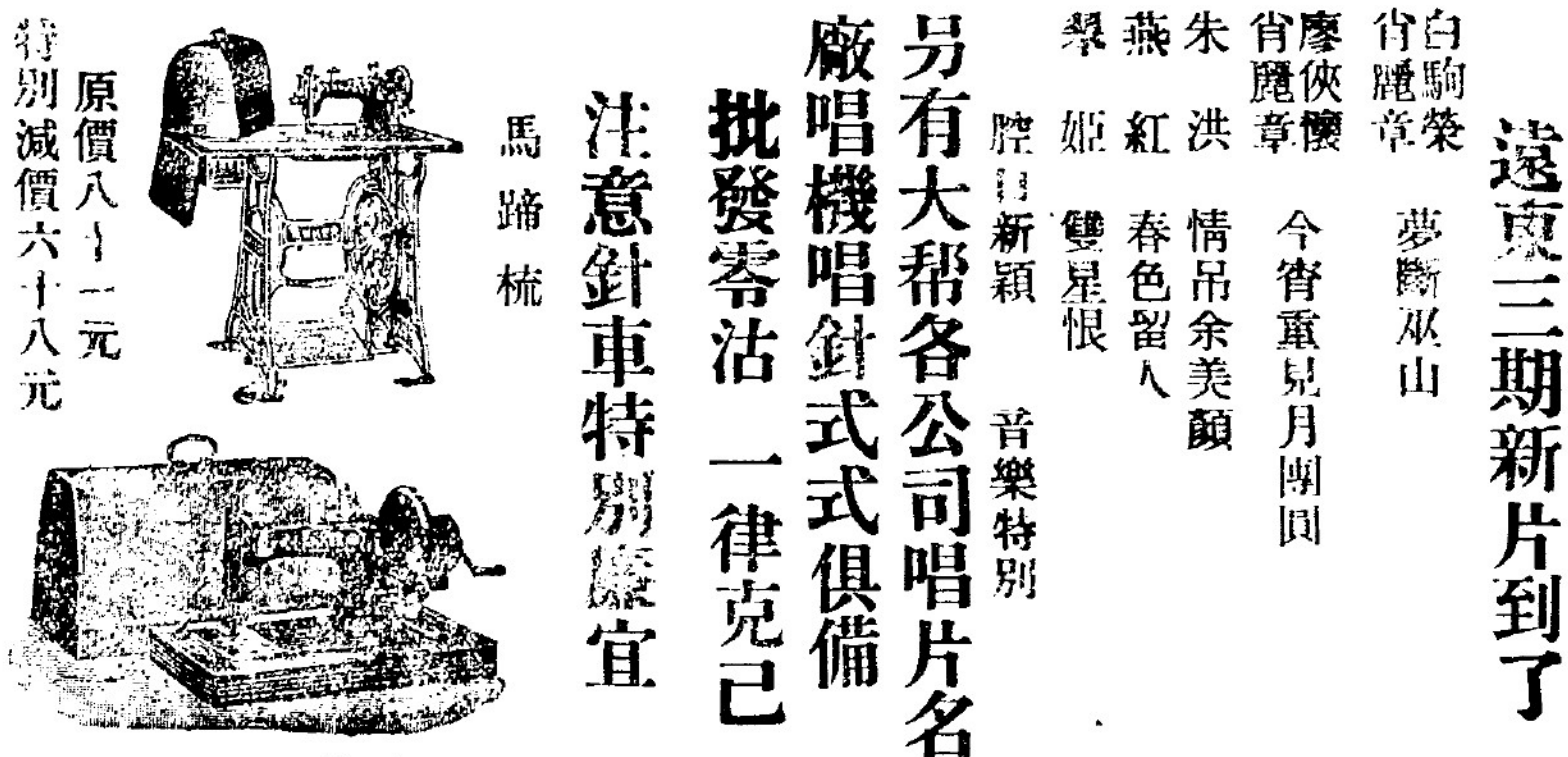 遠東三期新片到了
白駒榮
肖麗章 夢斷巫山
廖俠懷
肖麗章 今宵重見月團圓
朱洪 情吊余美顏
燕紅 春色留人
翠姬 雙星恨
腔口新穎 音樂特別
另有大帮各公司唱片名
廠唱機唱針式式俱備
批發零沽一律克己
注意針車特別廉宜
馬蹄梳
原價八十一元
特別減價六十八元